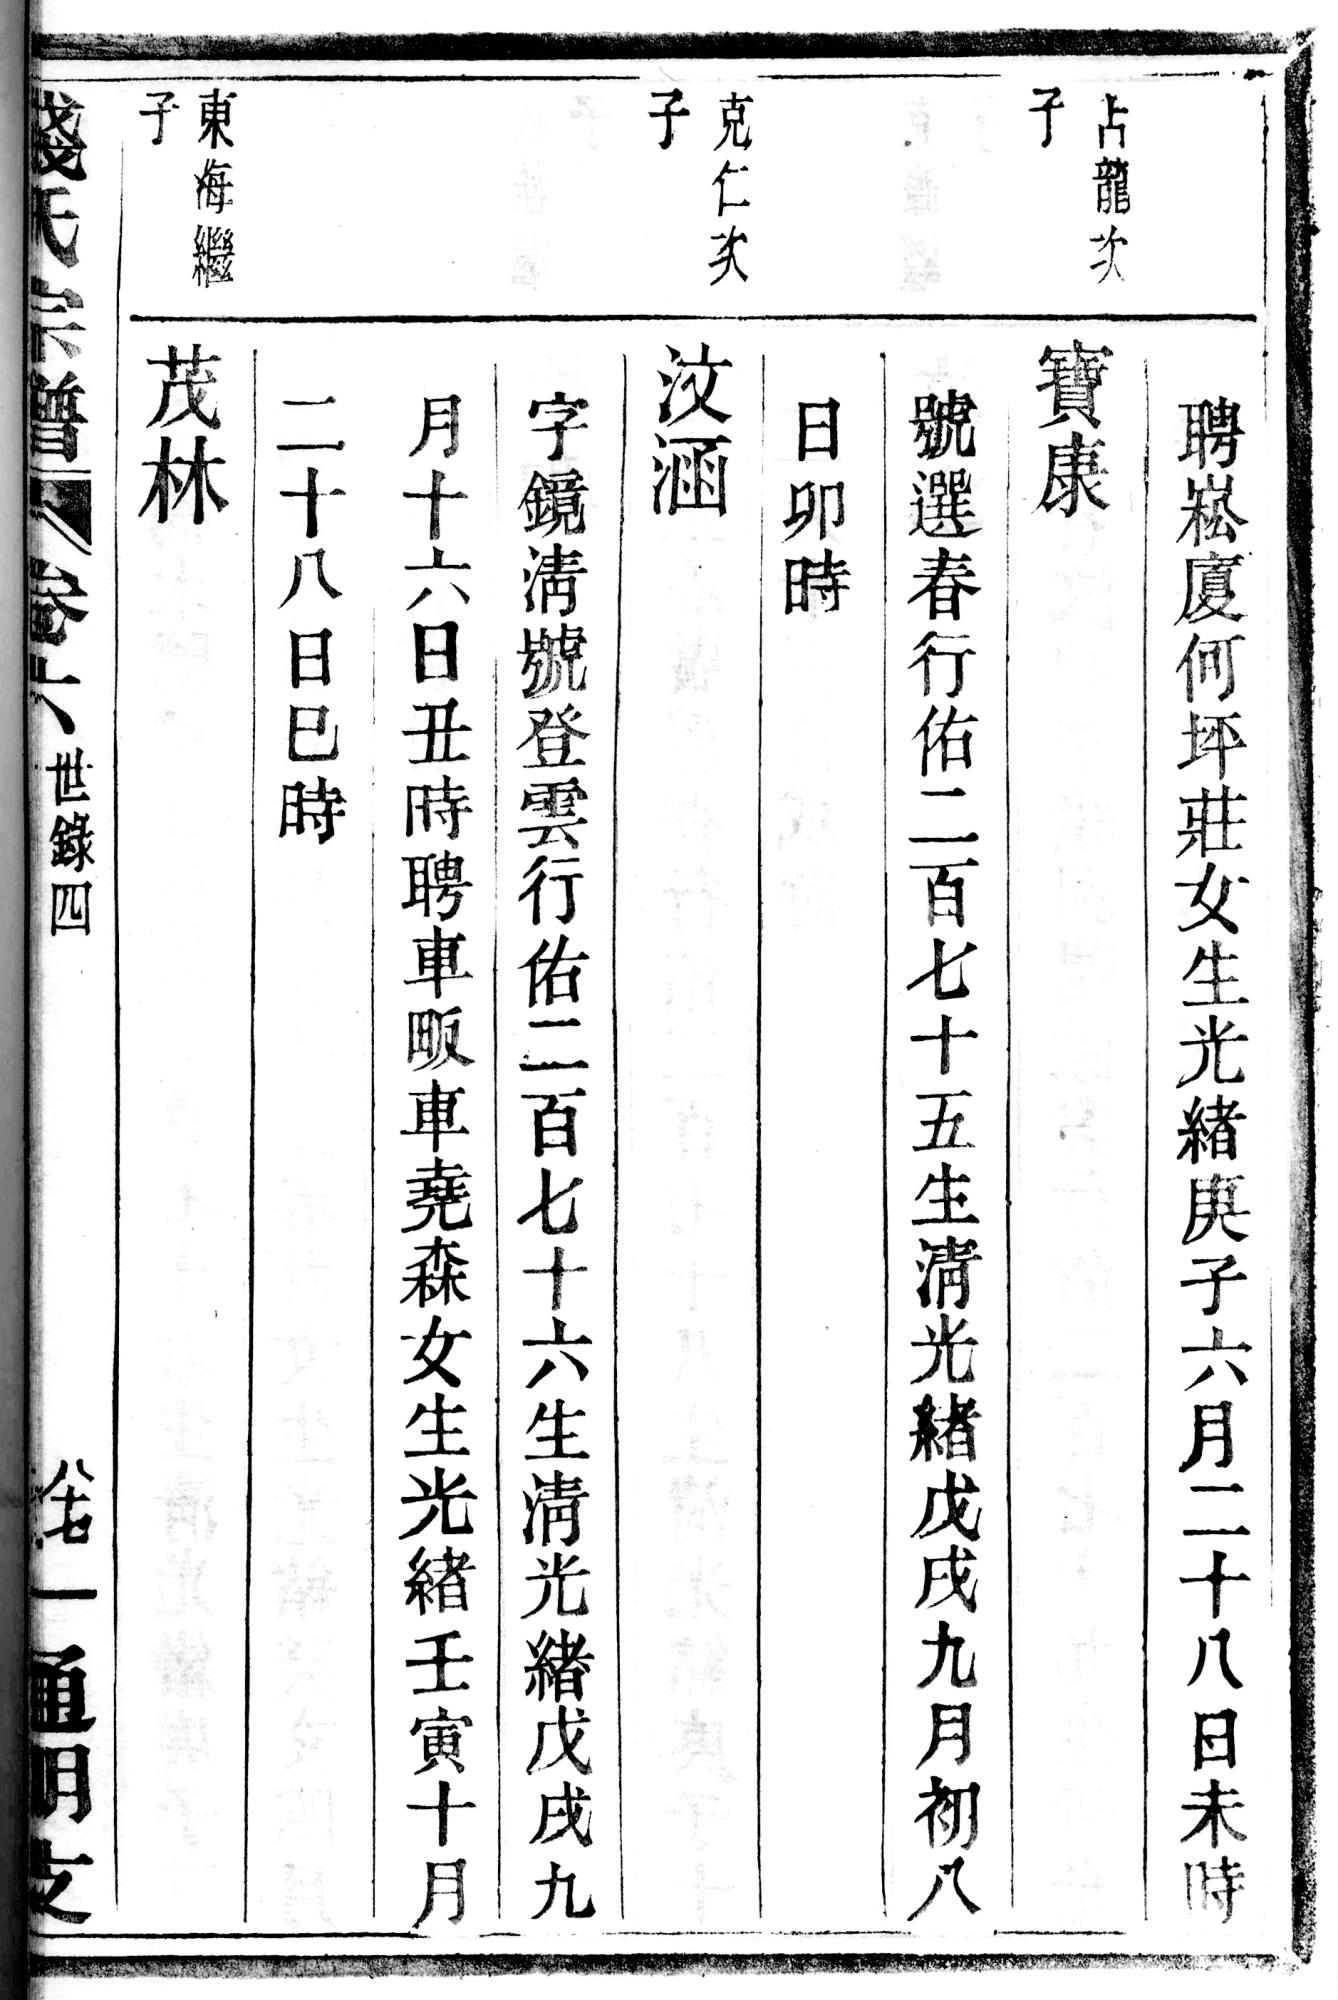 聘崧廈何坪莊女生光緒庚子六月二十八日未時
占龍次
子
寶康
號選春行佑二百七十五生淸光緒戊戌九月初八
日卯時
克仁次
子
汶涵
字鏡淸號登雲行佑二百七十六生淸光緒戊戌九
月十六日丑時聘車畈車堯森女生光緒壬寅十月
二十八日巳時
東海繼
子
茂林
錢氏宗譜 卷六 世錄四 八十七 一 通明支